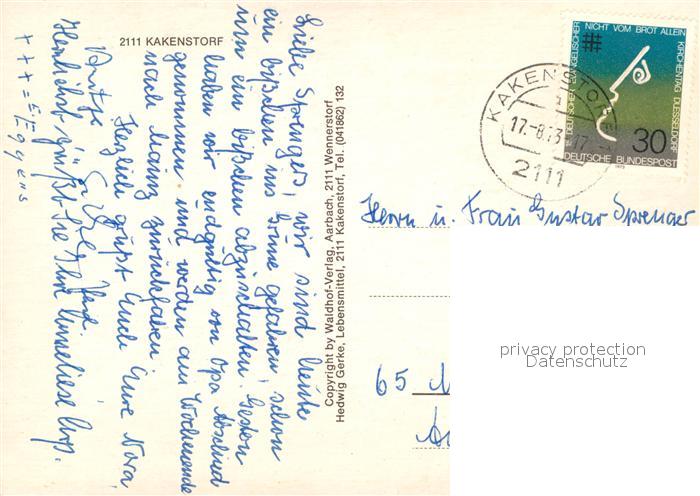 2111 KAKENSTORF
Liebe Sprengers, wir sind heute
ein bißchen ins Grüne gefahren, schon
um ein bißchen abzuschalten. Gestern
haben wir endgültig von Opa Abschied
genommen und werden am Wochenende
nach Mainz zurückfahren.
Herzlich grüßt Euch Eure Nora
Antje
Herzlichst grüßt Sie Ihre Anneliese
+++ = Eggers
Copyright by Waldhof-Verlag, Aarbach, 2111 Wennerstorf
Hedwig Gerke, Lebensmittel, 2111 Kakenstorf, Tel. (041862) 132
NICHT VOM BROT ALLEIN
15. DEUTSCHER EVANGELISCHER
KIRCHENTAG DUESSELDORF
30
DEUTSCHE BUNDESPOST
1973
KAKENSTORF
17.-8.73
2111
Herrn u. Frau Gustav Sprenger
65 M
privacy protection
Datenschutz